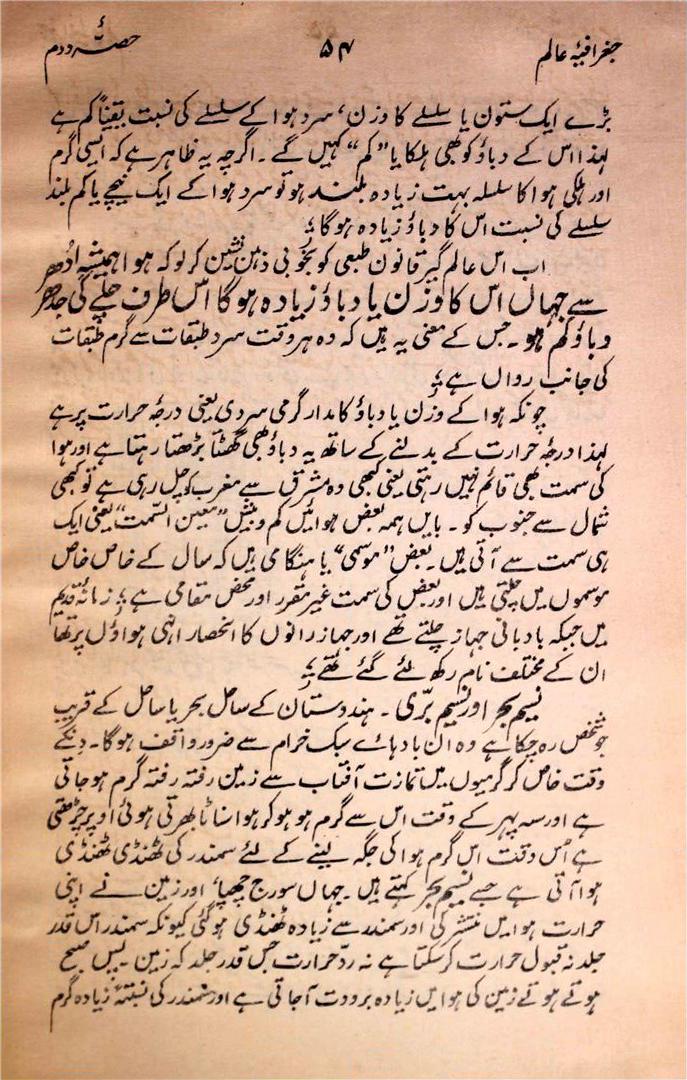 جغرافیۂ عالم ۵۴ حصّۂ دوم
بڑے ایک ستون یا سلسلے کا وزن، سرد ہوا کے سلسلے کی نسبت یقیناً کم ہے
لہذا اس کے دباؤ کو بھی ہلکا یا "کم" کہیں گے۔ اگرچہ یہ ظاہر ہے کہ ایسی گرم
اور ہلکی ہوا کا سلسلہ بہت زیادہ بلند ہو تو سرد ہوا کے ایک نیچے یا کم بلند
سلسلے کی نسبت اس کا دباؤ زیادہ ہوگا؛
اب اس عالم گیر قانون طبعی کو بخوبی ذہن نشین کر لو کہ ہوا ہمیشہ اُدھر
سے جہاں اس کا وزن یا دباؤ زیادہ ہوگا اس طرف چلے گی جدھر
دباؤ کم ہو۔ جس کے معنی یہ ہیں کہ وہ ہر وقت سرد طبقات سے گرم طبقات
کی جانب رواں ہے؛
چونکہ ہوا کے وزن یا دباؤ کا مدار گرمی سردی یعنی درجۂ حرارت پر ہے
لہذا درجۂ حرارت کے بدلنے کے ساتھ یہ دباؤ بھی گھٹتا بڑھتا رہتا ہے اور ہوا
کی سمت بھی قائم نہیں رہتی یعنی کبھی وہ مشرق سے مغرب کو چل رہی ہے تو کبھی
شمال سے جنوب کو۔ بایں ہمہ بعض ہوائیں کم و بیش "معین السمت" یعنی ایک
ہی سمت سے آتی ہیں۔ بعض "موسمی" یا ہنگامی ہیں کہ سال کے خاص خاص
موسموں میں چلتی ہیں اور بعض کی سمت غیر مقرر اور محض مقامی ہے؛ زمانۂ قدیم
میں جبکہ بادبانی جہاز چلتے تھے اور جہازرانوں کا انحصار انہی ہواؤں پر تھا
ان کے مختلف نام رکھ لئے گئے تھے؛
نسیم بحر اور نسیم برّی۔ ہندوستان کے ساحل بحر یا ساحل کے قریب
جو شخص رہ چکا ہے وہ ان بادہائے سبک خرام سے ضرور واقف ہوگا۔ دن کے
وقت خاص کر گرمیوں میں تمازت آفتاب سے زمین رفتہ رفتہ گرم ہو جاتی
ہے اور سہ پہر کے وقت اس سے گرم ہو ہو کر ہوا سناٹا بھرتی ہوئی اوپر چڑھتی
ہے اُس وقت اس گرم ہوا کی جگہ لینے کے لئے سمندر کی ٹھنڈی ٹھنڈی
ہوا آتی ہے جسے نسیم بحر کہتے ہیں۔ جہاں سورج چھپا، اور زمین نے اپنی
حرارت ہوا میں منتشر کی اور سمندر سے زیادہ ٹھنڈی ہو گئی کیونکہ سمندر اس قدر
جلد نہ قبول حرارت کر سکتا ہے نہ ردّ حرارت جس قدر جلد کہ زمین پس صبح
ہوتے ہوتے زمین کی ہوا میں زیادہ برودت آ جاتی ہے اور سمندر کی نسبتہً زیادہ گرم